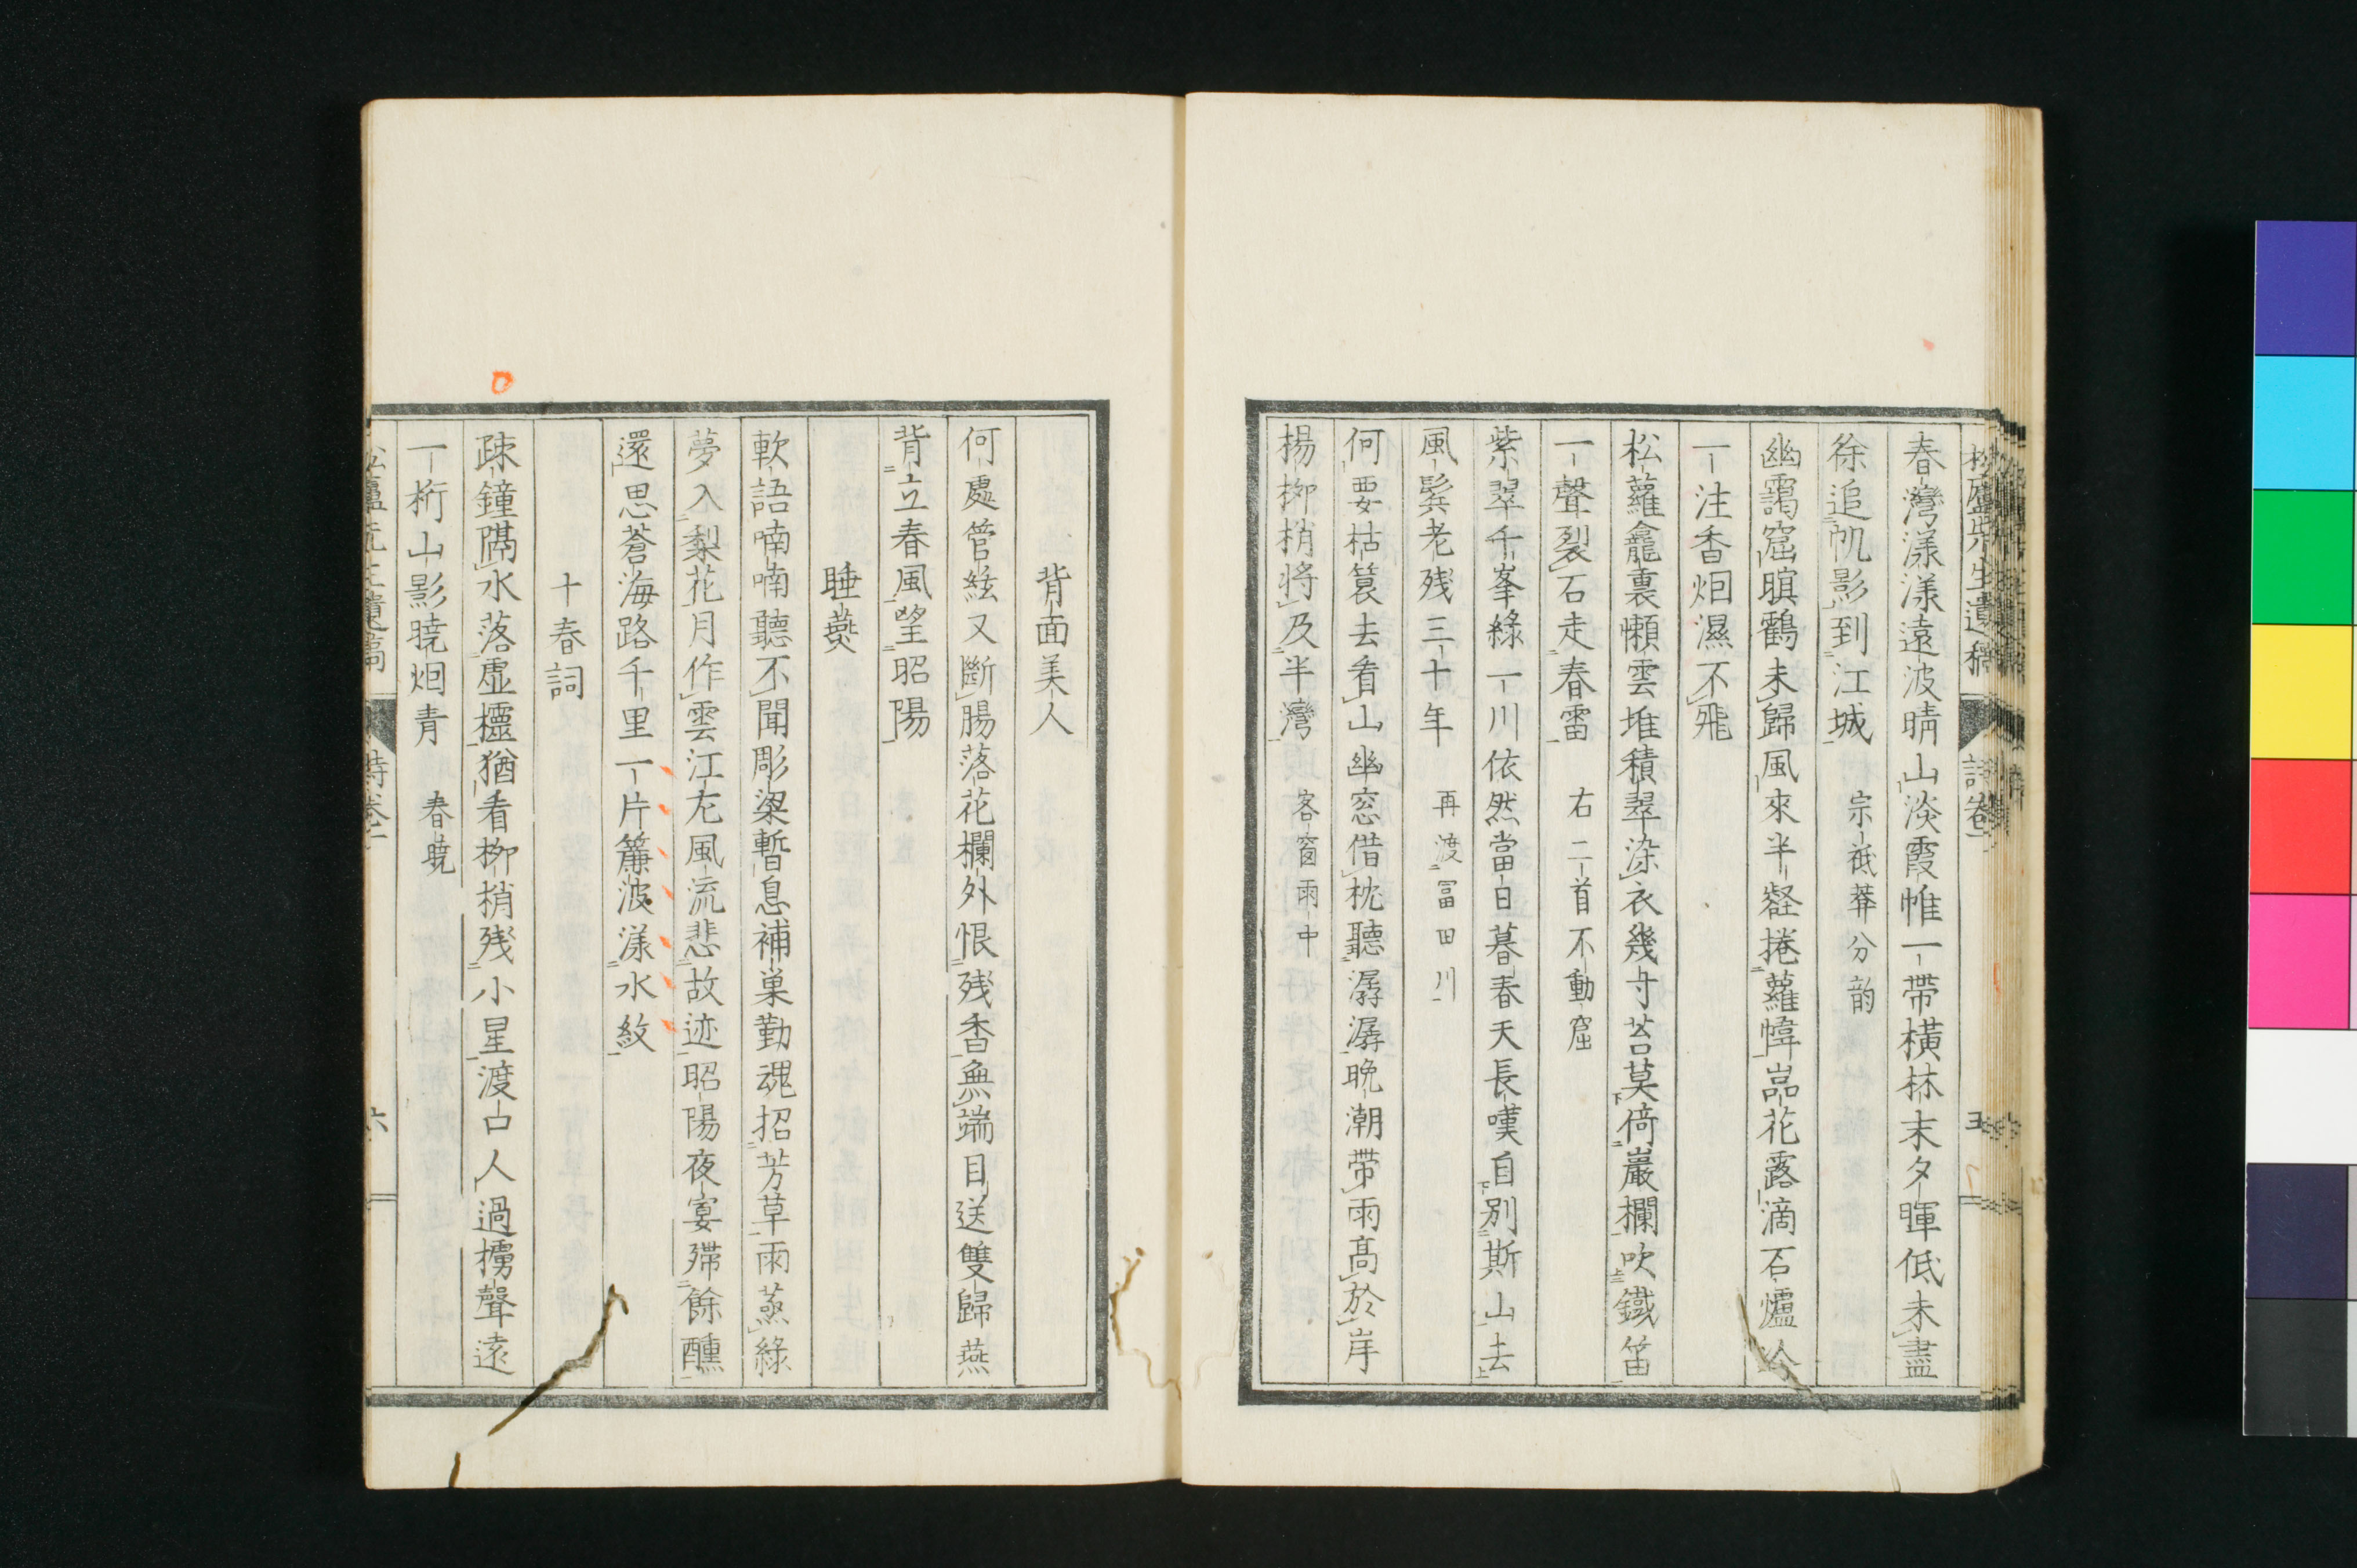 春灣漾漾遠波晴山淡霞帷一帶橫林末夕暉低未盡
徐追帆影到江城 宗祗莽分韵
幽靄窟瞑鸖未歸風來半壑捲蘿幃嵓花露滴石爐冷
一注香烟濕不飛
松蘿龕裏懶雲堆積翠染衣幾寸苔莫倚巖欄吹鐵笛
一聲裂石走春雷 右二首不動窟
紫翠千峯緑一川依然當日暮春天長嘆自別斯山去
風鬂老残三十年 再渡冨田川
何要枯筇去看山幽窓借枕聽潺潺晚潮帶雨高於岸
楊柳梢将及半灣 客窗雨中
背面美人
何處管絃又斷腸落花欄外恨残香無端目送雙歸燕
背立春風望昭陽
睡燕
軟語喃喃聽不聞彫梁暫息補巣勤魂招芳草雨蒸緑
夢入梨花月作雲江左風流悲故迹昭陽夜宴殢餘醺
還思蒼海路千里一片簾波漾水紋
十春詞
疎鐘隔水落虚櫺猶看柳梢残小星渡口人過擄聲遠
一桁山影暁烟青 春暁